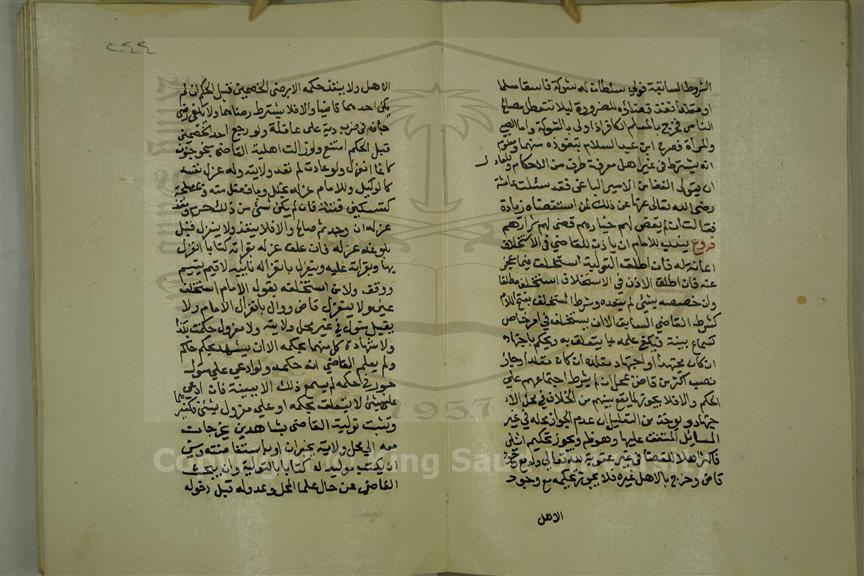 الشروط السابقة فولى سلطان له شوكة فاسقا مسلما
او مقلدا نفذ قضاؤه للضرورة ليلا تتعطل مصالح
الناس فخرج بالمسلم الكافر اولى بالشوكة واما الصبي
والمراة فصرح ابن عبد السلام بنفوذه منهما ومعلوم
انه يشترط في غير اهل معرفة طرف من الاحكام
ان يتولى القضا من الامير الباغي فقد سئلت عائشة
رضي الله تعالى عنها عن ذلك لمن استقضاه زياد
فقالت ان لم يقض لهم خيارهم قضى لهم شرارهم
فروع يندب للامام ان ياذن للقاضي في الاستخلاف
اعانة له فان اطلق التولية استخلف فيما عجز
عنه فان اطلق الاذن في الاستخلاف استخلف مطلقا
وان خصصه بشئ لم يتعده وشرط المستخلف بفتح اللام
كشرط القاضي السابق الا ان يستخلف في امر خاص
كسماع بينة فيكفي علمه بما يتعلق به ويحكم باجتهاده
ان كان مجتهدا او اجتهاد مقلده ان كان مقلدا وجاز
نصب اكثر من قاض بمحل ان لم يشرط اجتماعهم على
الحكم والا فلا يجوز لما يقع بينهم من الخلاف في محل الاجـ
ـتهاد ويوخذ من التعليل ان عدم الجواز محله في غير
المسائل المتفق عليها وهو ظاهر ويجوز تحكيم اثنين
فاكثر اهلا للقضا في غير عقوبة لله تعالى ولو مع وجود
قاض وخرج بالاهل غيره فلا يجوز تحكيمه مع وجود
الاهل
٢٤٤
الاهل ولا ينفذ حكمه الا برضى الخصمين قبل الحكم ان لم
يكن احدهما قاضيا والا فلا يشترط رضاهما ولا يكفي رضى
جان في ضرب دية على عاقلة ولو رجع احد الخصمين
قبل الحكم امتنع ولو زالت اهلية القاضي بنحو جنون
كاغما انعزل ولو عادت لم تعد ولايته وله عزل نفسه
كالوكيل وللامام عزله بخلل وبافضل منه وبمصلحة
كتسكين فتنة فان لم يكن شئ من ذلك حرم ونفذ
عزله ان وجد ثم صالح والا فلا ينفذ ولا ينعزل قبل
بلوغه عزله فان علق عزله بقراته كتابا انعزل
بها وبقراته عليه وينعزل بانعزاله نائبه لا قيم يتيم
ووقف ولا من استخلفه بقول الامام استخلف
عني ولا ينعزل قاض ووال بانعزال الامام ولا
يقبل قول متول في غير محل ولايته ولا معزول حكمت بكذا
ولا شهادة كل منهما بحكمه الا ان يشهد بحكم حاكم
ولم يعلم القاضي انه حكمه ولو ادعي على متول
جور في حكمه لم يسمع ذلك الا ببينة فان ادعي
عليه بشئ لا يتعلق بحكمه او على معزول بشئ فكغيرهما
وتثبت تولية القاضي بشاهدين يخرجان
معه الى محل ولايته يخبران او باستفاضة ويسن
ان يكتب موليه له كتابا بالتولية وان يبحث
القاضي عن حال علما المحل وعدوله قبل دخوله
Copyright © King Saud University
1957